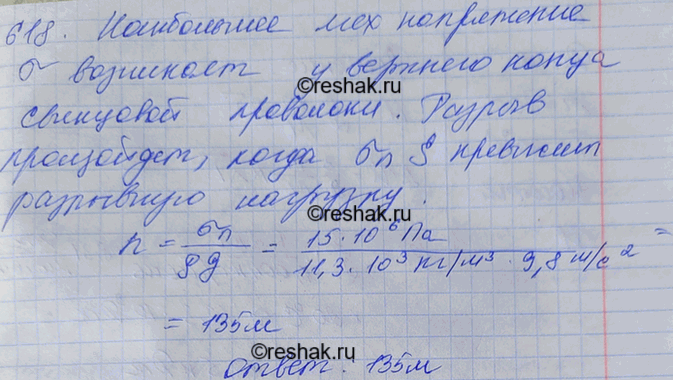 618. Наибольшее мех напряжение
©reshak.ru
σ возникает у верхнего конца
свинцовой проволоки. Разрыв
произойдет, когда σп S превысит
разрывную нагрузку.
©reshak.ru
h = σп / ρg = 15·10⁶ Па / 11,3·10³ кг/м³ · 9,8 м/с² =
= 135м
©reshak.ru
Ответ: 135м